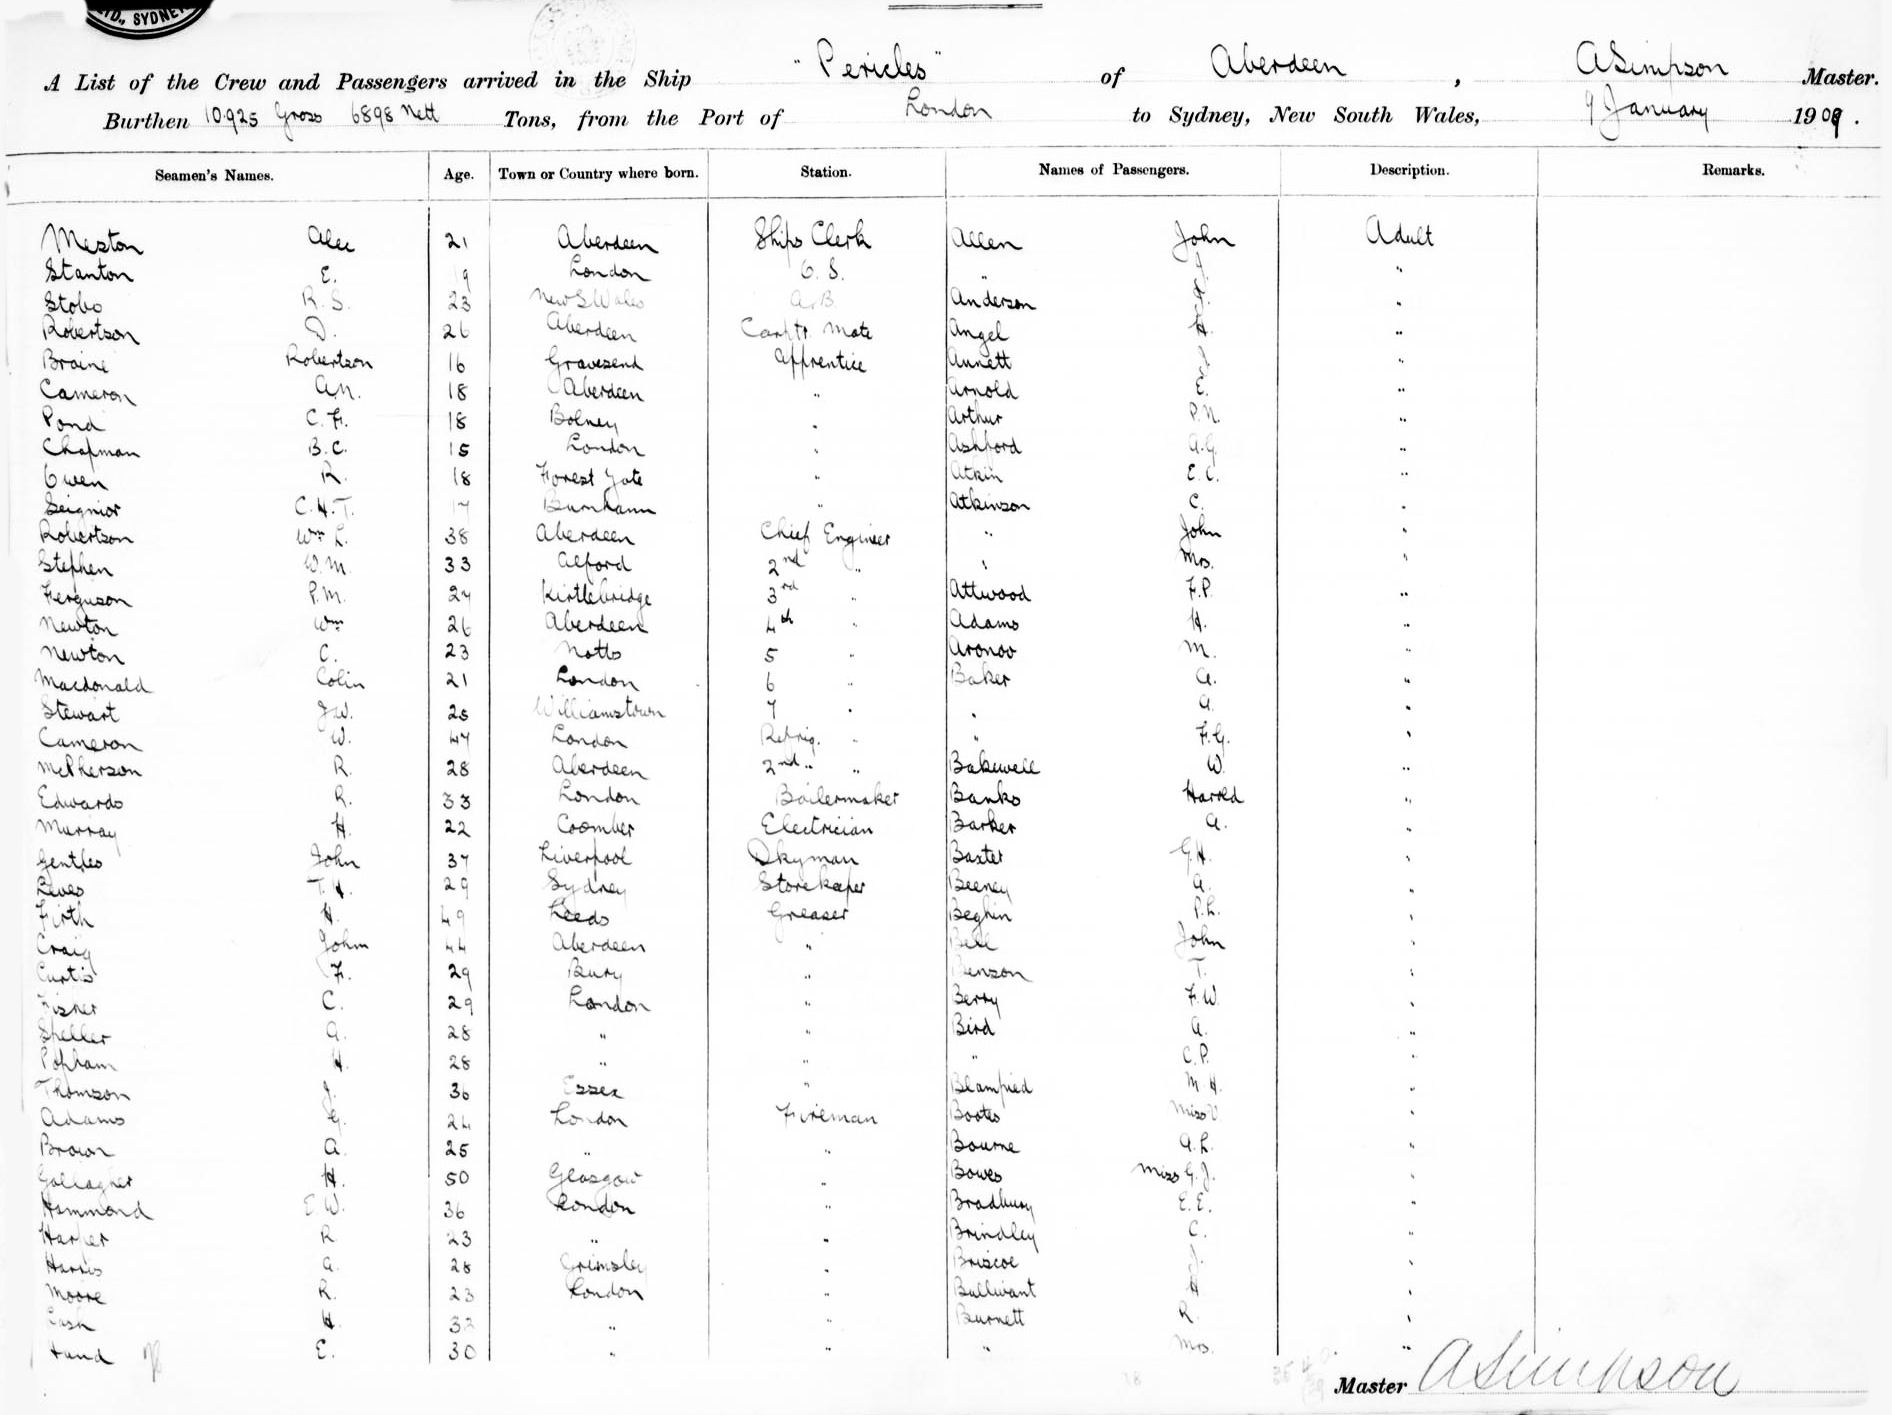 TD., SYDNEY
A List of the Crew and Passengers arrived in the Ship "Pericles" of Aberdeen, A Simpson Master.
Burthen 10.925 Gross 6898 Nett Tons, from the Port of London to Sydney, New South Wales, 9 January 1909.
Seamen's Names. Age. Town or Country where born. Station. Names of Passengers. Description. Remarks.
Meston Alec 21 Aberdeen Ships Clerk Allen John Adult
Stanton E. 19 London O. S. " J. "
Stobo R. S. 23 New S Wales A.B. Anderson "
Robertson D. 26 Aberdeen Carptr. Mate Angel H. "
Braine Robertson 16 Gravesend Apprentice Annett J "
Cameron A.N. 18 Aberdeen " Arnold E. "
Pond C. F. 18 Bolney " Arthur P.N. "
Chapman B.C. 15 London " Ashford A.G. "
Owen R. 18 Forest Gate " Atkin E.C. "
Seignior C.H.T. 17 Burnham " Atkinson C. "
Robertson Wm L. 38 Aberdeen Chief Engineer " John "
Stephen W.M. 33 Alford 2nd " " Mrs. "
Ferguson P.M. 27 Kirtlebridge 3rd " Attwood F.P. "
Newton Wm 26 Aberdeen 4th " Adams H. "
Newton C. 23 Notts 5 " Aronov M. "
Macdonald Colin 21 London 6 " Baker A. "
Stewart J.W. 25 Williamstown 7 " " A. "
Cameron W. 47 London Refrig. " " F.G. "
McPherson R. 28 Aberdeen 2nd " " Bakewell W. "
Edwards R. 33 London Boilermaker Banks Harold "
Murray H. 22 Coomber Electrician Barker A. "
Gentles John 37 Liverpool Dkyman Baxter G.H. "
Reeves T.H. 29 Sydney Storekeeper Beeney A. "
Firth H. 49 Leeds Greaser Beghin P.L. "
Craig John 44 Aberdeen " Bell John "
Curtis F. 29 Bury " Benson T. "
Fisher C. 29 London " Berry F.W. "
Speller A. 28 " " Bird A. "
Popham H. 28 " " " C.P. "
Thomson J. 36 Essex " Blampied M.H. "
Adams G. 24 London Fireman Bootes Miss V. "
Brown A. 25 " " Bourne A.L. "
Gallagher H. 50 Glasgow " Bowes Miss G.J. "
Hammond E.W. 36 London " Bradbury E.E. "
Harper R. 23 " " Brindley C. "
Harris A. 28 Grimsley " Briscoe J. "
Moore R. 23 London " Bullivant H "
Cash H. 32 " " Burnett R. "
Hand E. 30 " " " Mrs. "
Master A Simpson